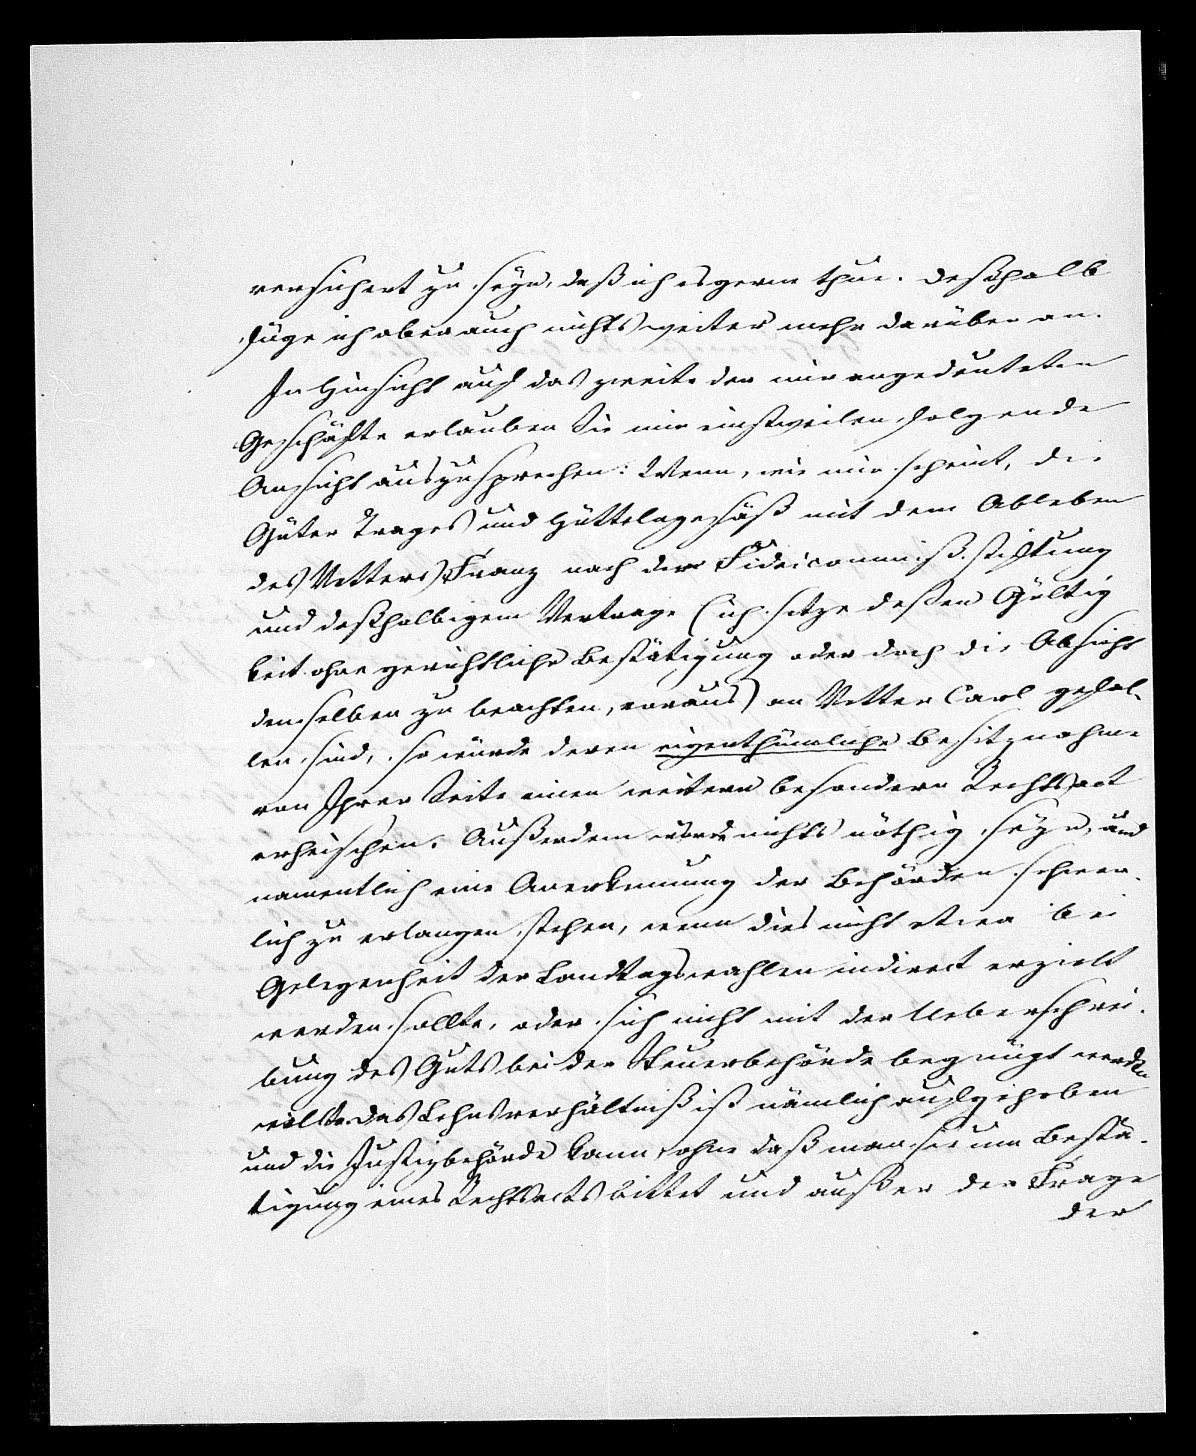 versichert zu seyn, daß ich es gerne thue. Deßhalb
füge ich aber auch nichts weiter mehr darüber an.
In Hinsicht auf das zweite der mir angedeuteten
Geschäfte erlauben Sie mir einstweilen folgende
Ansicht auszusprechen: Wenn, wie mir scheint, die
Güter Trages und Hüttelngesäß mit dem Ableben
des Vetters Franz nach der Fideicommiß-Stiftung
und deßhalbigem Vertrage (ich setze deßen Gültig
keit ohne gerichtliche Bestätigung oder doch die Absicht
denselben zu beachten, voraus) an Vetter Carl gefal-
len sind, so würde deren eigenthümliche Besitznahme
von Ihrer Seite einen weitern besondern Rechtsact
erheischen. Außerdem würde nichts nöthig seyn, und
namentlich eine Anerkennung der Behörden schwer-
lich zu erlangen stehen, wenn dies nicht etwa bei
Gelegenheit der Landtagswahlen indirect erzielt
werden sollte, oder sich nicht mit der Ueberschrei-
bung des Guts bei der Steuerbehörde begnügt werden
wollte. Das Lehnsverhältniß ist nämlich aufgehoben
und die Justizbehörde kann, ohne daß man sie um Bestä-
tigung eines Rechtsacts bittet und außer der Frage
der